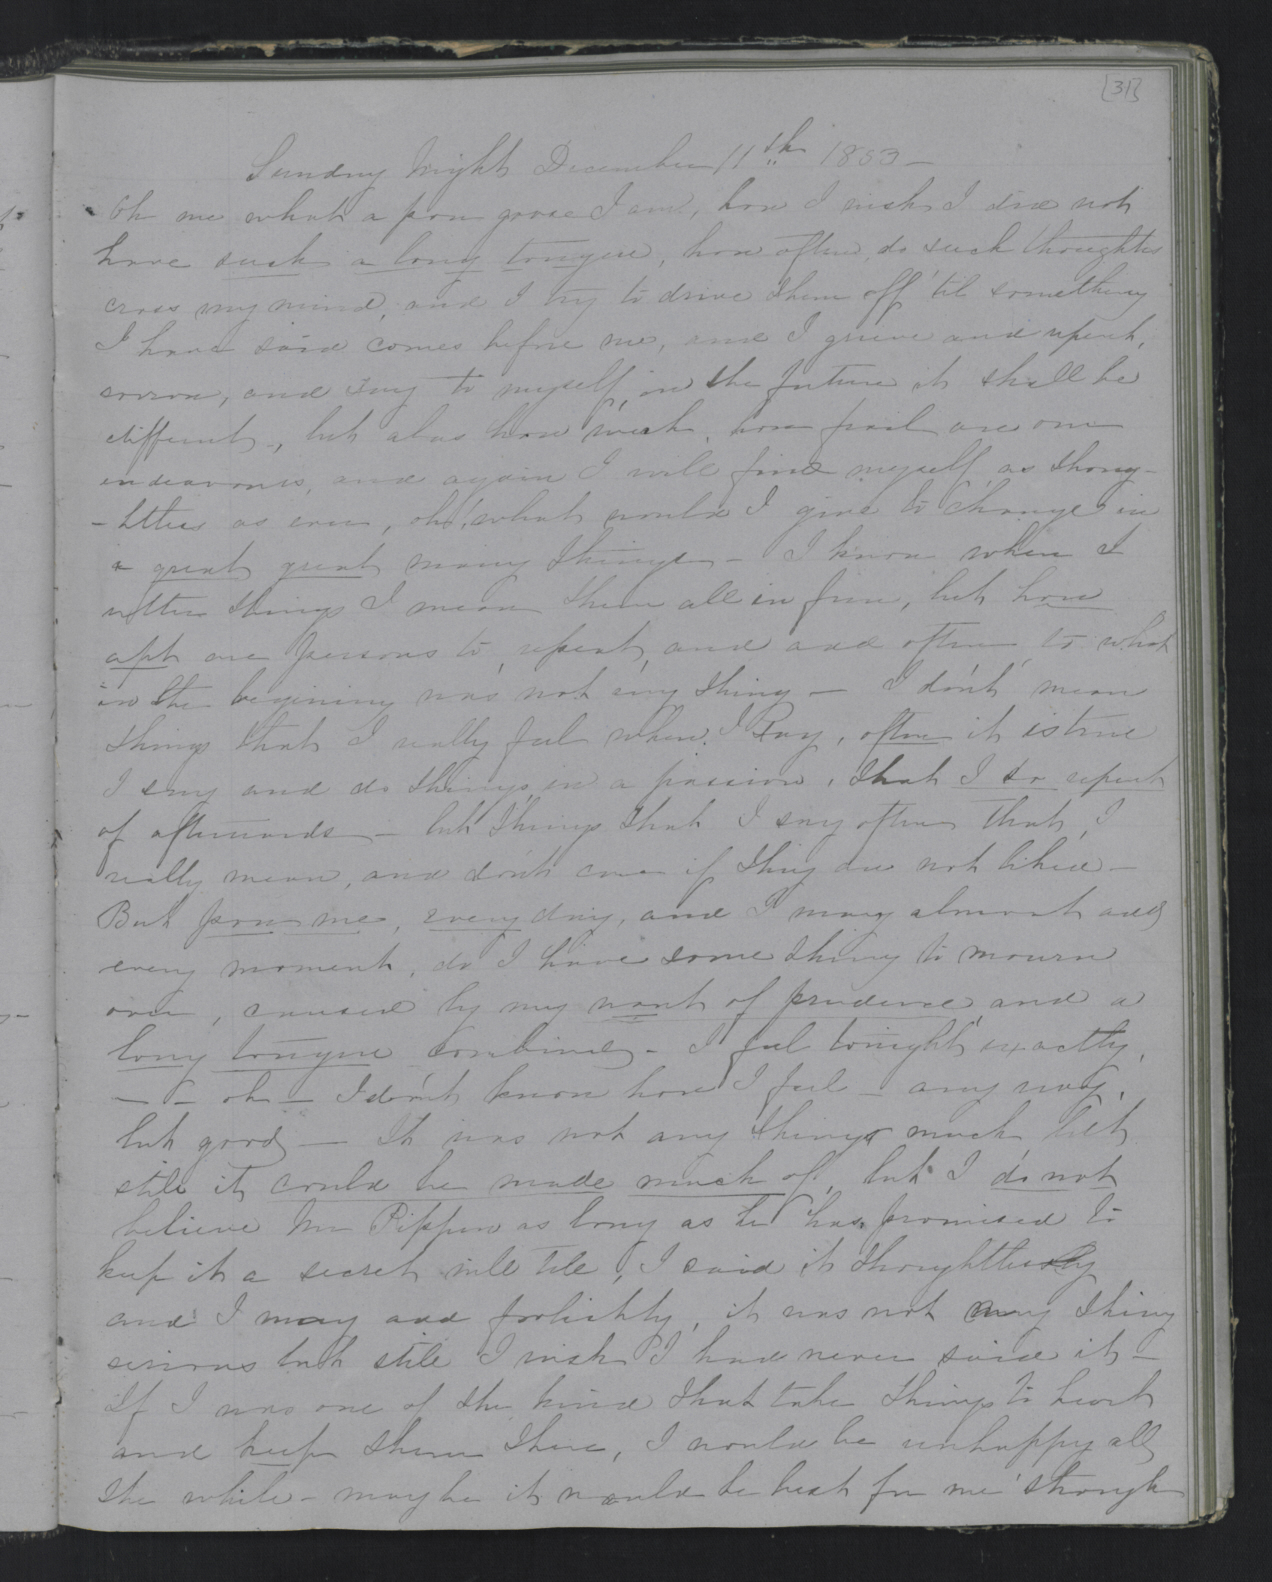 [31]
Sunday Night December 11th 1853 —
Oh me what a poor goose I am, how I wish I did not
have such a long tongue, how often do such thoughts
cross my mind, and I try to drive them off 'til something
I have said comes before me, and I grieve and repent,
sorrow, and say to myself, in the future it shall be
different, but alas how weak, how frail are our
endeavours, and again I will find myself as thoug-
-htless as ever, oh! what would I give to change in
a great great many things — I know when I
utter things I mean them all in fun, but how
apt are persons to, repeat, and add often to what
in the begining was not any thing — I don't mean
things that I really feel when I say, often it is true
I say and do things in a passion, that I do repent
of afterwards — but things that I say often that, I
really mean, and don't care if they are not liked —
But poor me, every day, and I may almost add
every moment, do I have some thing to mourn
over, caused by my want of prudence, and a
long tongue combined — I feel tonight exactly,
— — oh — I don't know how I feel — any way,
but good — It was not any thing much but
still it could be made much of, but I do not
believe Mr Pippen as long as he has promised to
keep it a secret will tell, I said it thoughtlessly
and I may add foolishly, it was not any thing
serious but still I wish I had never said it —
If I was one of the kind that take things to heart
and keep them there, I would be unhappy all
the while — maybe it would be best for me though